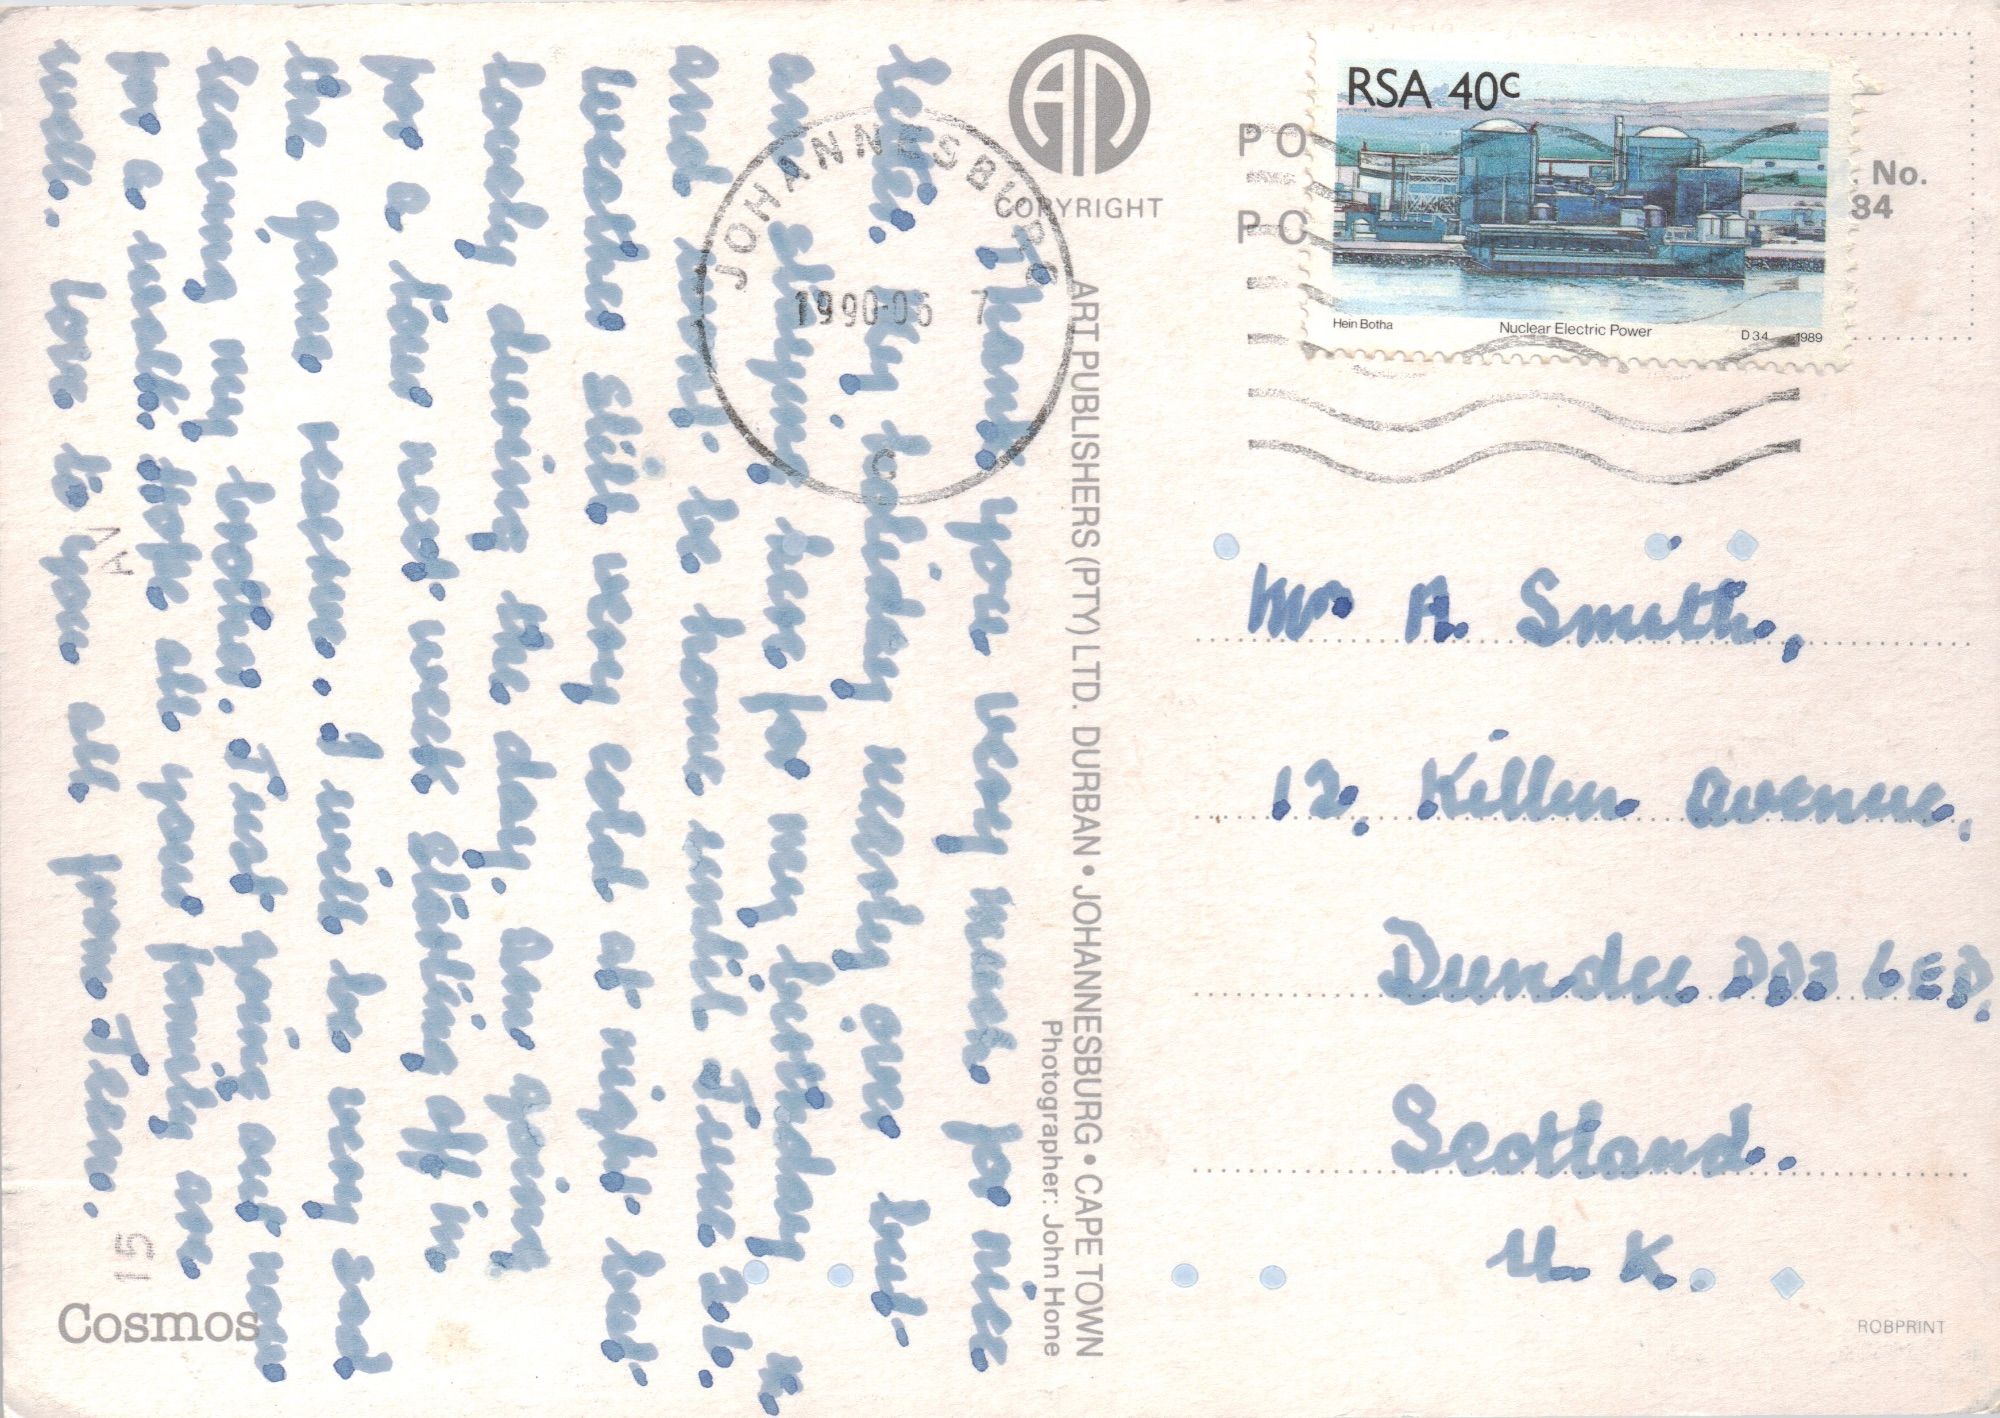 Thank you very much for nice
letter. My holiday nearly over but
am staying here for my birthday
and wont be home until June
Weather still very cold at night but
lovely during the day. Am going
for a tour next week starting off in
the game reserve. I will be very sad
leaving my brother. Just going out now
for a walk. Hope all your family are
well. Love to you all from Jean.
Cosmos
15
AV
COPYRIGHT
ART PUBLISHERS (PTY) LTD. DURBAN • JOHANNESBURG • CAPE TOWN
Photographer: John Hone
JOHANNESBURG
1990-06 7
C
PO
PO
RSA 40c
Hein Botha Nuclear Electric Power D34 1989
No.
34
Mr A. Smith,
12, Killin Avenue,
Dundee DD3 6EB,
Scotland.
U. K.
ROBPRINT